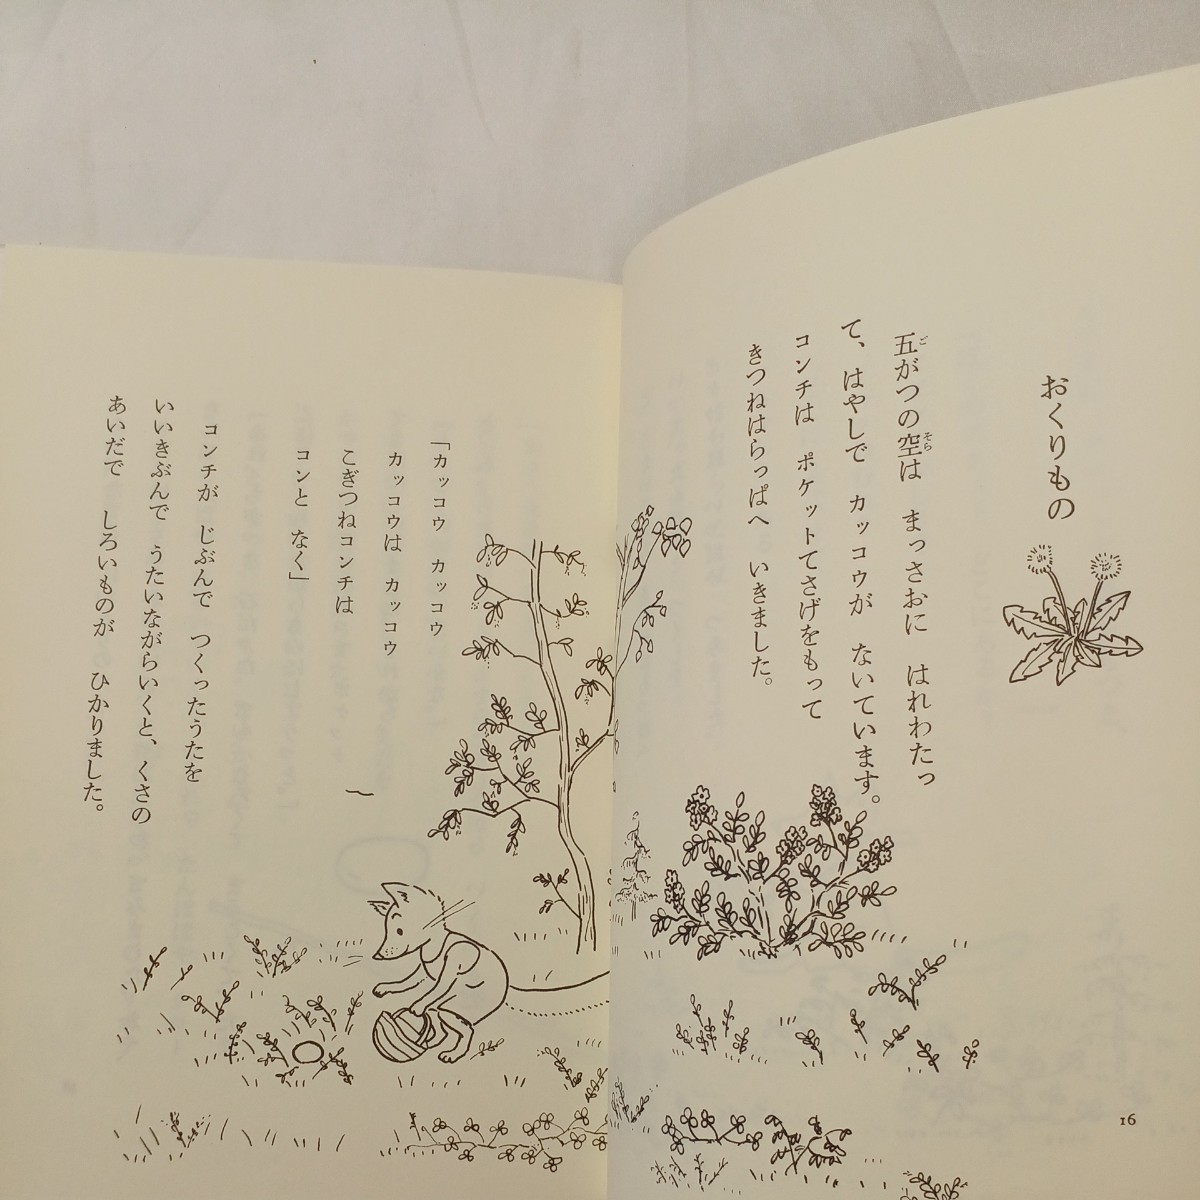 おくりもの
五がつの空は　まっさおに　はれわたっ
ご
そら
て、はやしで　カッコウが　ないています。
コンチは　ポケットてさげをもって
きつねはらっぱへ　いきました。
16
「カッコウ　カッコウ
カッコウは　カッコウ
こぎつねコンチは
コンと　なく」
コンチが　じぶんで　つくったうたを
いいきぶんで　うたいながらいくと、くさの
あいだで　しろいものが　ひかりました。